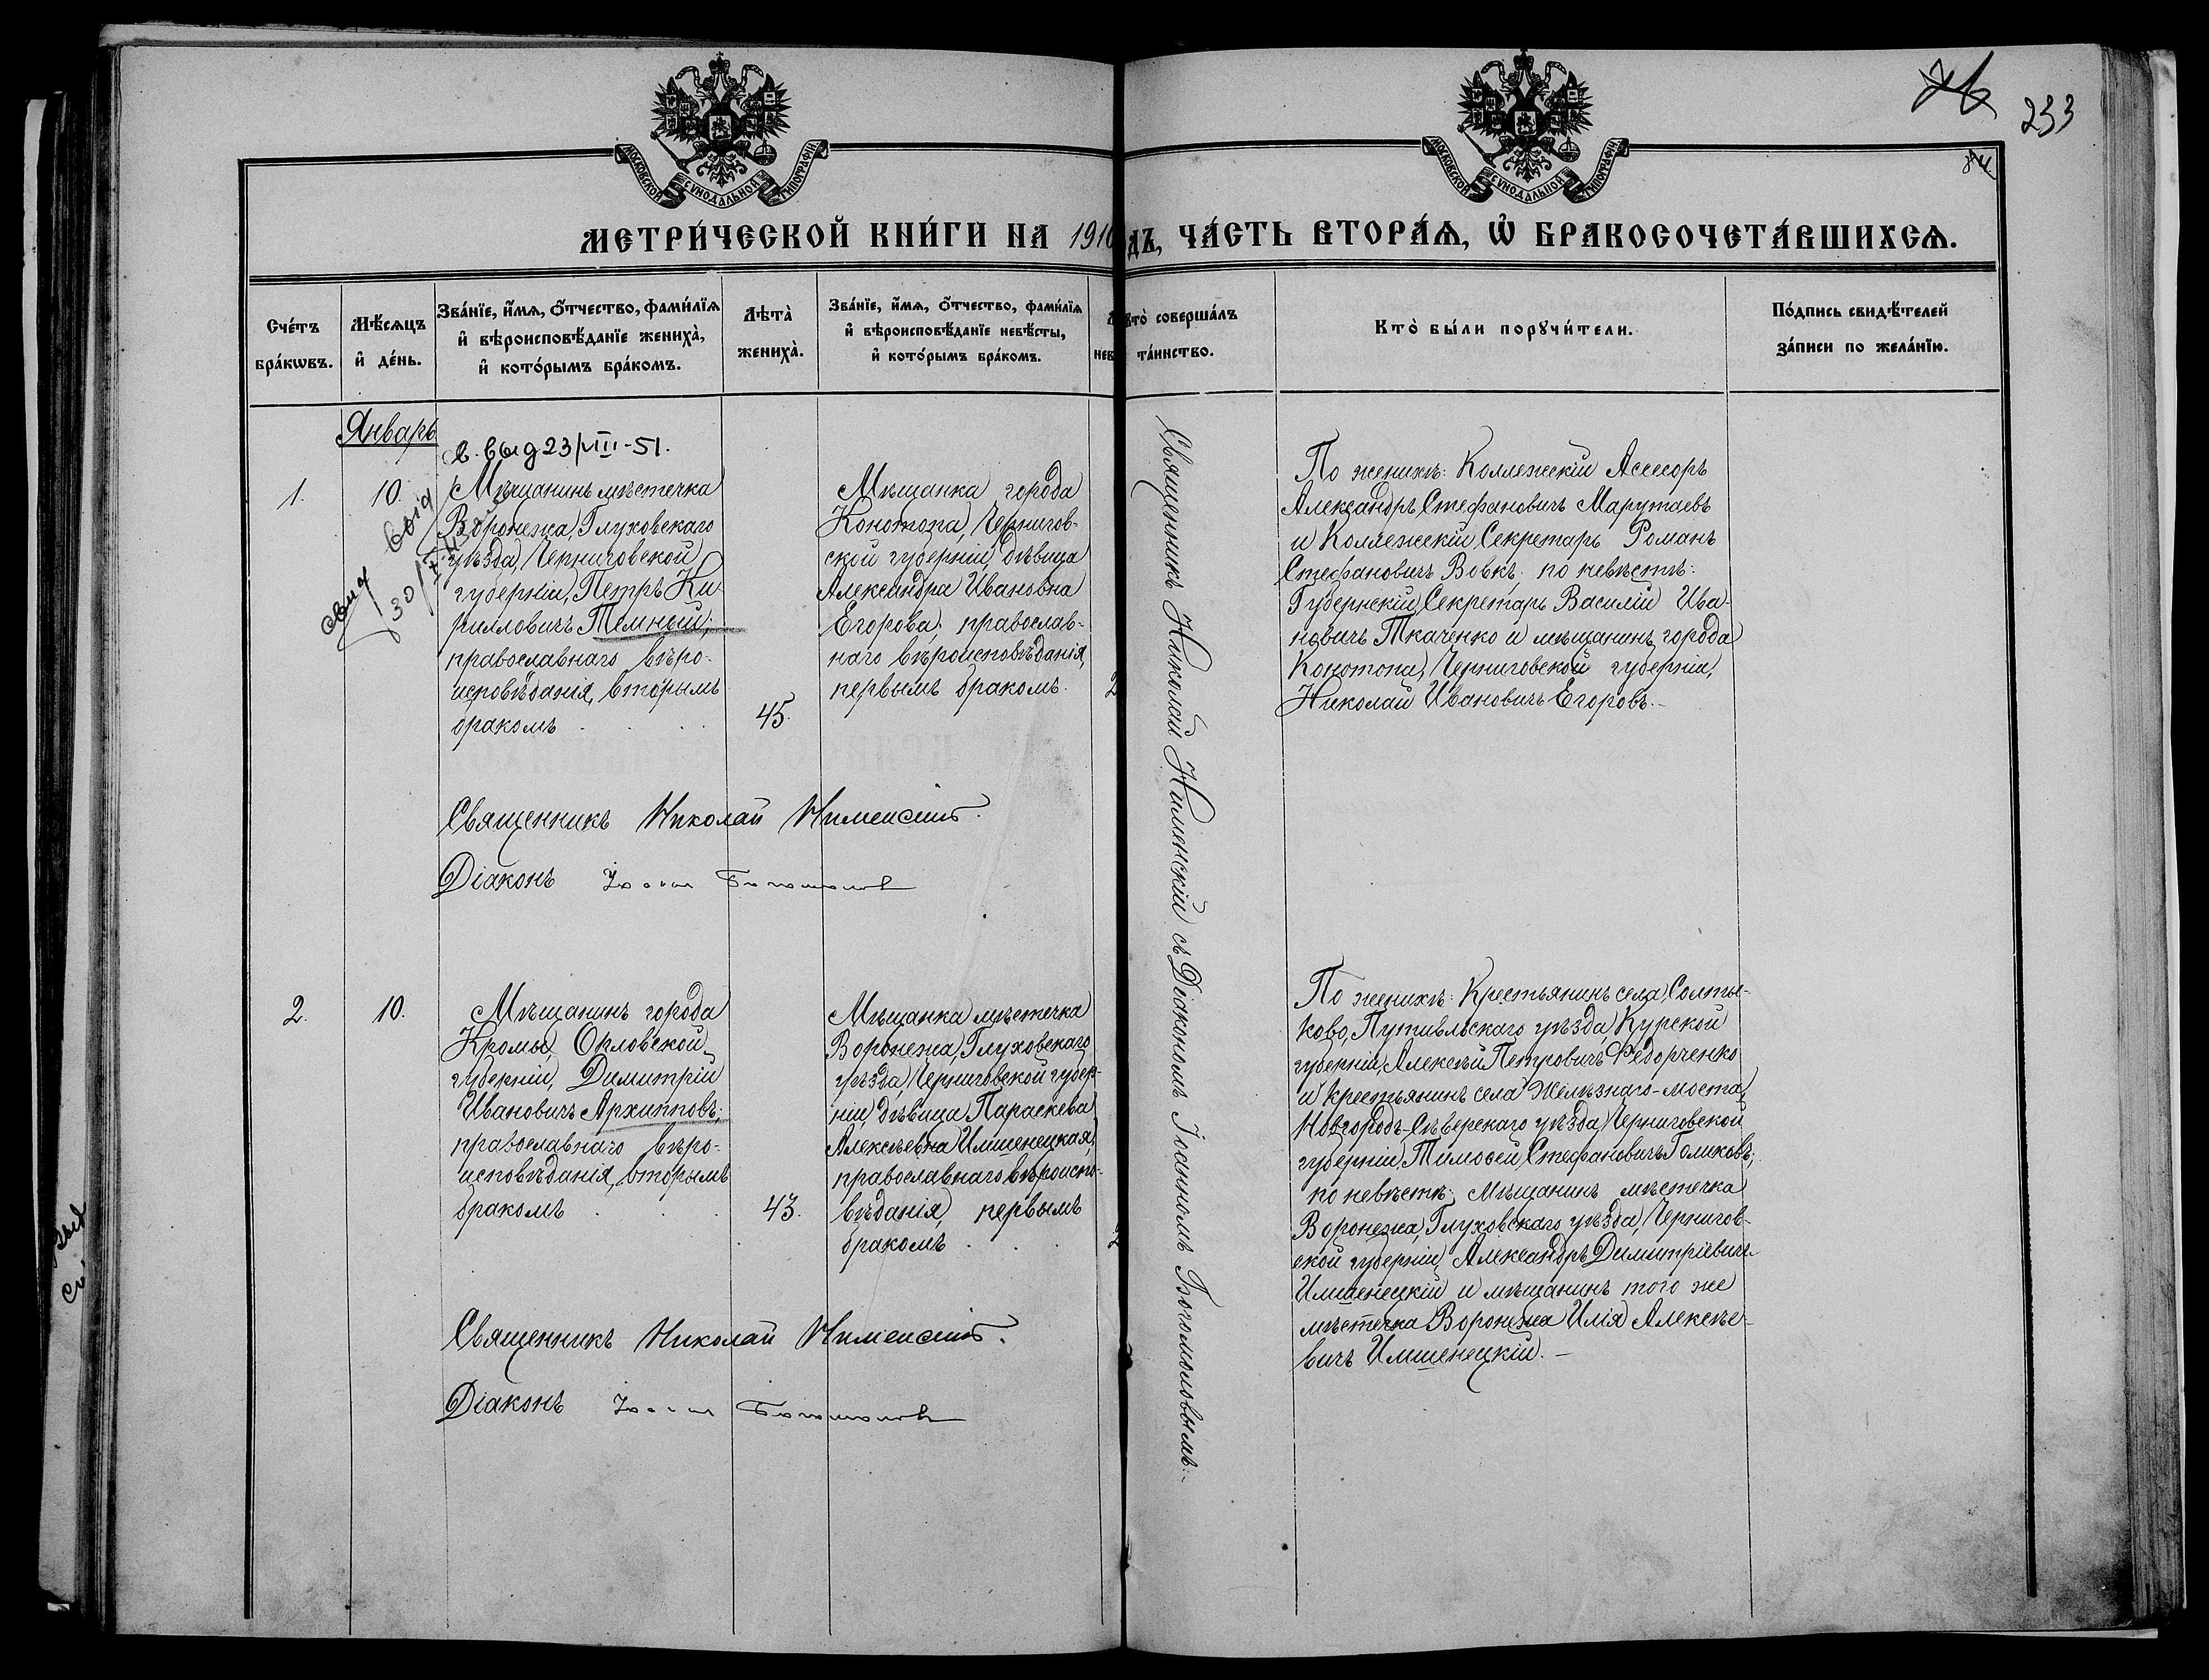 233
МОСКОВСКОЙ СѴНОДАЛЬНОЙ ТИПОГРАФІИ
МОСКОВСКОЙ СѴНОДАЛЬНОЙ ТИПОГРАФІИ
МЕТРИ́ЧЕСКОЙ КНИ́ГИ НА 1910
ДЪ, ЧА́СТЬ ВТОРА́Ѧ, Ѽ БРАКОСОЧЕТА́ВШИХСѦ.
Сче́тъ бра́кѡвъ.
Мѣ́сѧцъ и҆ де́нь.
Зва́нїе, и҆́мѧ, ѻ҆́тчество, фами́лїѧ и҆ вѣроисповѣ́данїе жениха̀, и҆ кото́рымъ бра́комъ.
Лѣта̀ жениха̀.
Зва́нїе, и҆́мѧ, ѻ҆́тчество, фами́лїѧ и҆ вѣроисповѣ́данїе невѣ́сты, и҆ кото́рымъ бра́комъ.
нев
кто̀ соверша́лъ та́инство.
Кто̀ бы́ли порꙋчи́тели.
По́дпись свидѣ́телей за́писи по жела́нїю.
Январь
св. выд 23/VIII-51.
свид выд
30/
1.
10.
Мѣщанинъ мѣстечка
Воронежа, Глуховскаго
уѣзда, Черниговской
губерніи, Петръ Ки-
рилловичъ Темный,
православнаго вѣро-
исповѣданія, вторымъ
бракомъ
45.
Мѣщанка города
Конотопа, Чернигов-
ской губерніи, дѣвица
Александра Ивановна
Егорова, православ-
наго вѣроисповѣданія,
первымъ бракомъ.
2
Священникъ Николай Нименскій съ Діакономъ Іоанномъ Богомоловымъ.
По женихѣ: Коллежскій Ассесоръ
Александръ Стефановичъ Марутаевъ
и Коллежскій Секретарь Романъ
Стефановичъ Вовкъ; по невѣстѣ:
Губернскій Секретарь Василій Ива-
новичъ Ткаченко и мѣщанинъ города
Конотопа, Черниговской губерніи,
Николай Ивановичъ Егоровъ.
Священникъ Николай Нименскій.
Діаконъ Іоаннъ Богомоловъ
2.
10.
Мѣщанинъ города
Кромы, Орловской
губерніи, Димитрій
Ивановичъ Архипповъ,
православнаго вѣро-
исповѣданія, вторымъ
бракомъ
43.
Мѣщанка мѣстечка
Воронежа, Глуховскаго
уѣзда, Черниговской губер-
ніи, дѣвица Параскева
Алексѣевна Имшенецкая,
православнаго вѣроиспо-
вѣданія, первымъ
бракомъ
2
По женихѣ: Крестьянинъ села Солты-
ково, Путивльскаго уѣзда, Курской
губерніи, Алексѣй Петровичъ Федорченко
и крестьянинъ села Желѣзнаго-моста,
Новгородъ-Сѣверскаго уѣзда, Черниговской
губерніи, Тимоѳей Стефановичъ Голиковъ;
по невѣстѣ: Мѣщанинъ мѣстечка
Воронежа, Глуховскаго уѣзда, Чернигов-
ской губерніи, Александръ Димитріевичъ
Имшенецкій и мѣщанинъ того же
мѣстечка Воронежа Илія Алексѣе-
вичъ Имшенецкій.
Священникъ Николай Нименскій.
Діаконъ Іоаннъ Богомоловъ